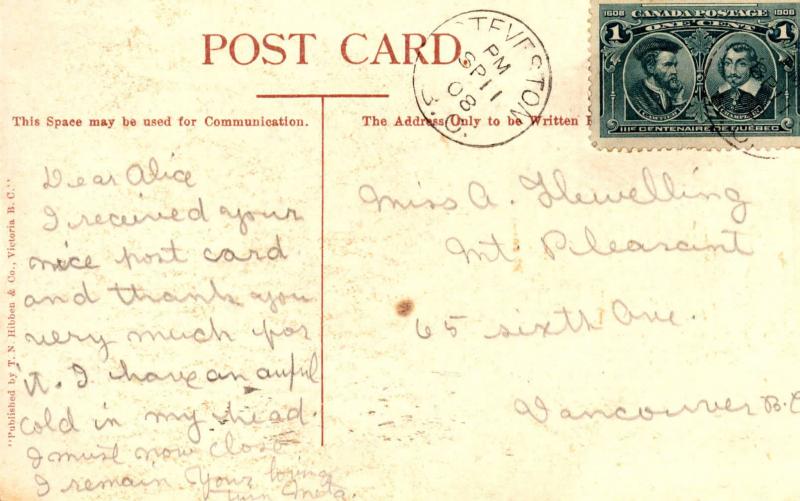 POST CARD.
STEVESTON
PM
SP 11
08
B.C.
1608 CANADA POSTAGE 1908
1 ONE CENT 1
CARTIER CHAMPLAIN
IIIE CENTENAIRE DE QUÉBEC
This Space may be used for Communication.
The Address Only to be Written
"Published by T. N. Hibben & Co., Victoria B. C."
Dear Alice
I received your
nice post card
and thank you
very much for
it. I have an awful
cold in my head.
I must now close
I remain Your loving
Meta.
Miss A. Flewelling
Mt. Pleasent
65 sixth Ave.
Vancouver B.C